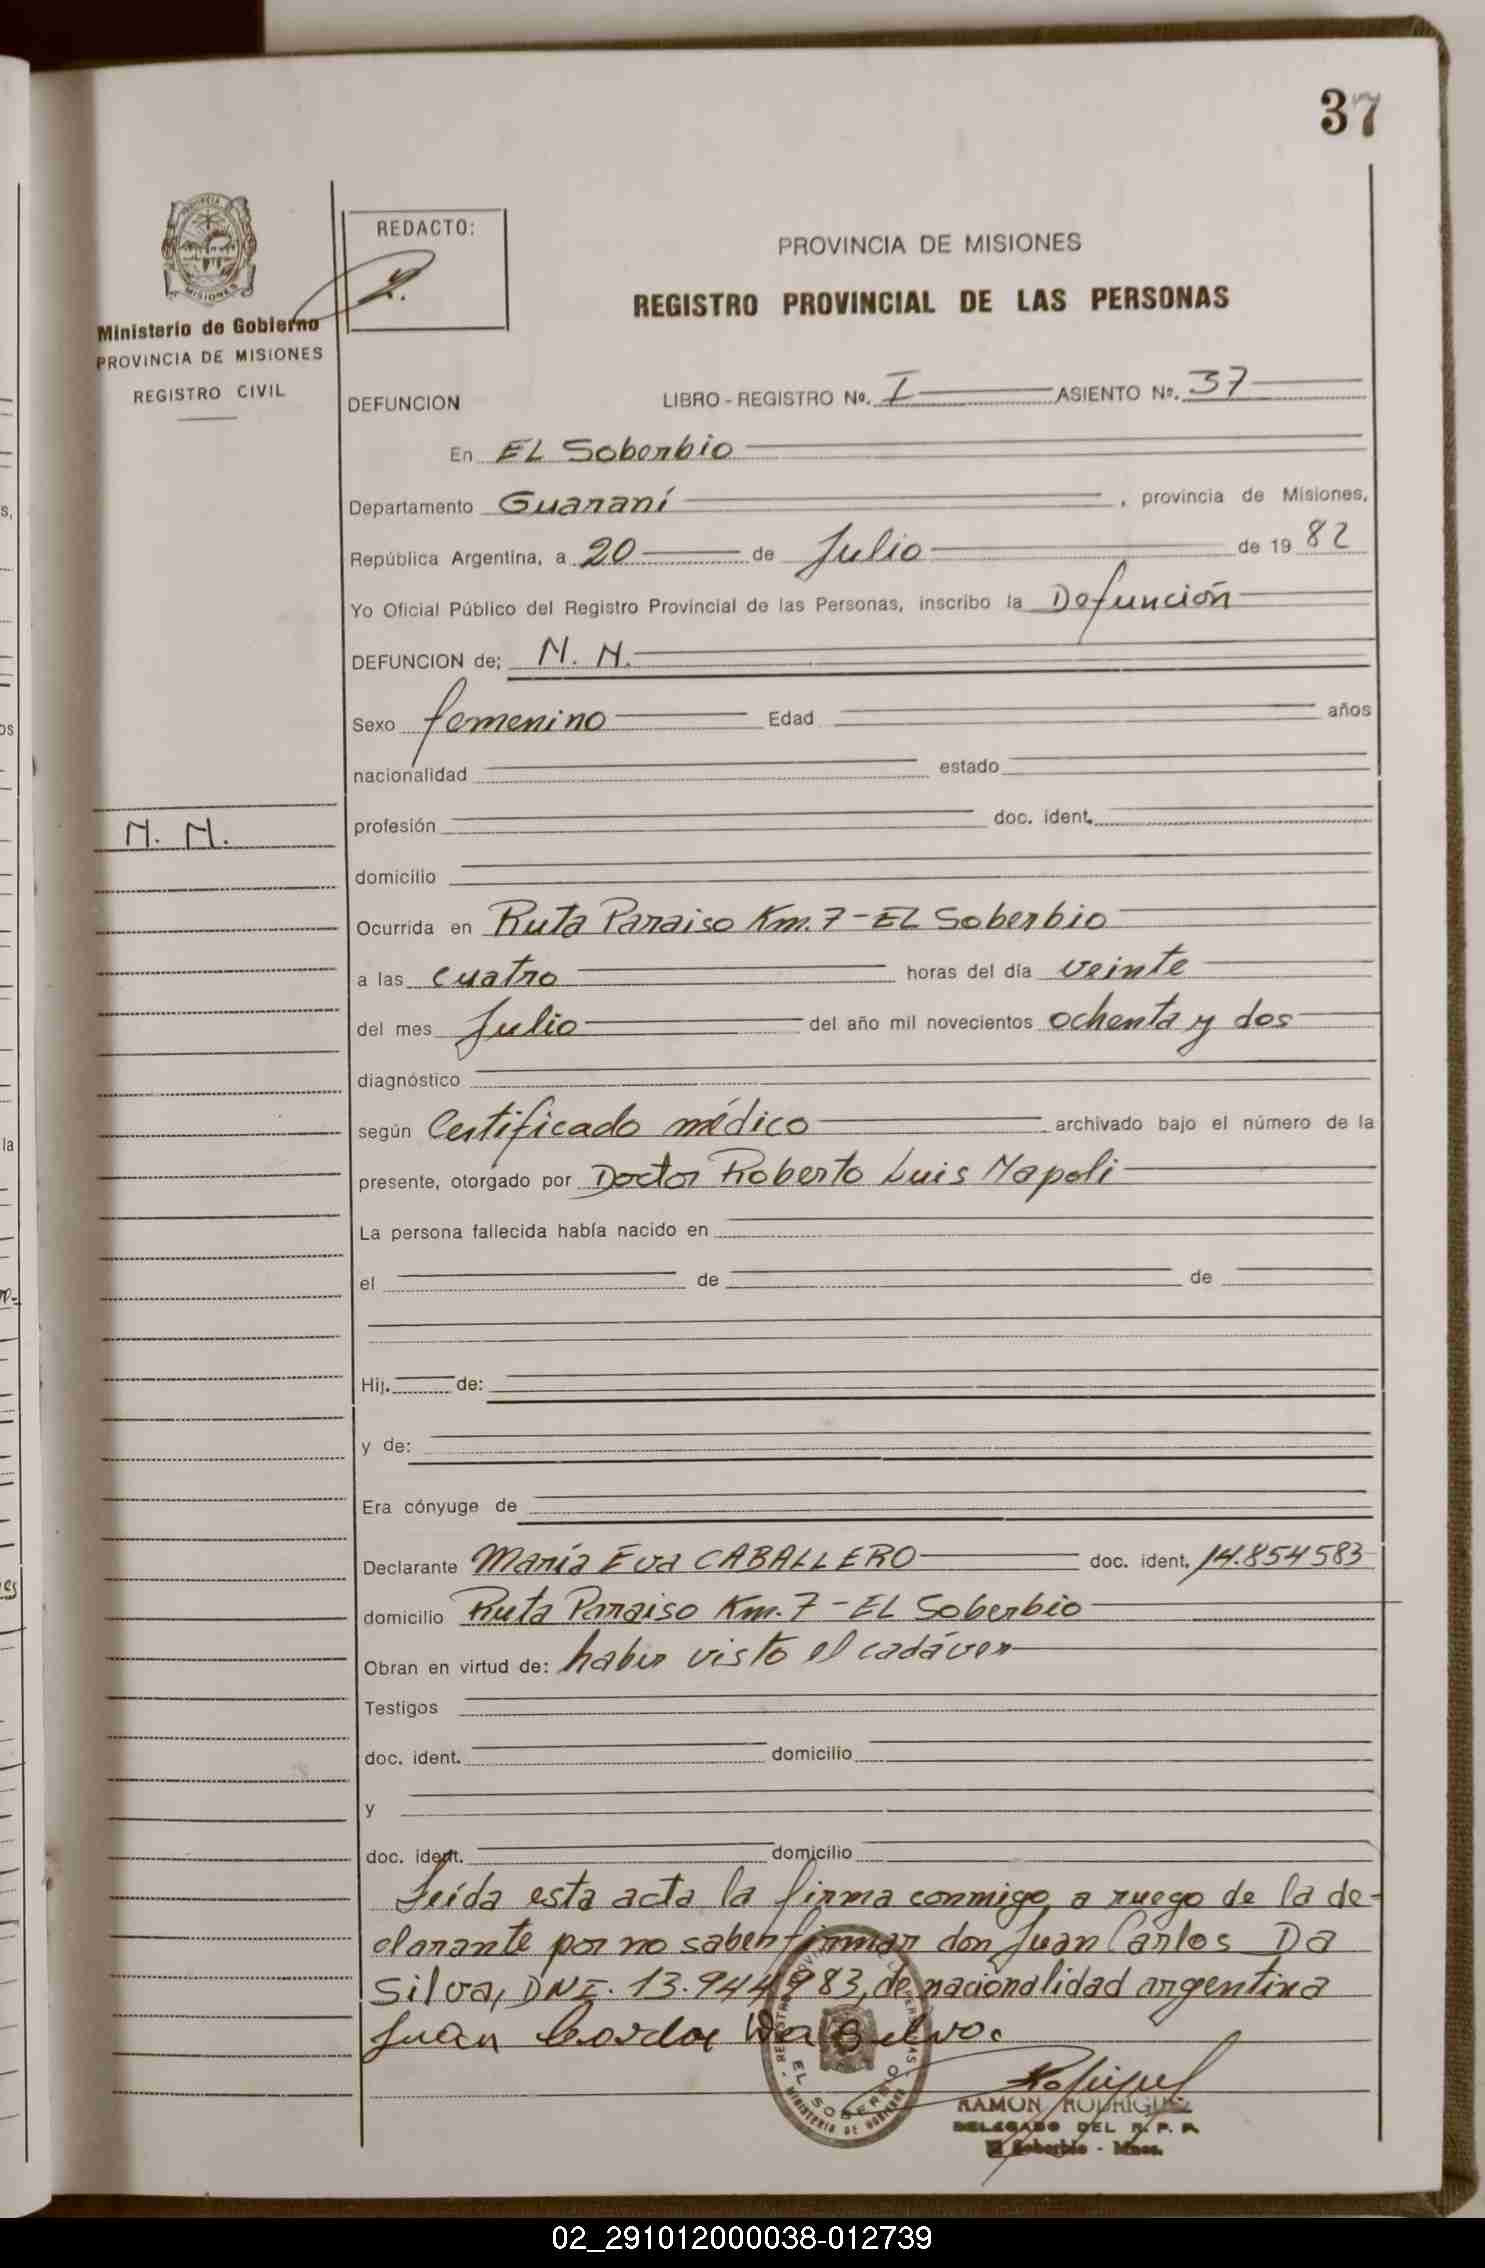 37
PROVINCIA
MISIONES
Ministerio de Gobierno
PROVINCIA DE MISIONES
REGISTRO CIVIL
REDACTO:
PROVINCIA DE MISIONES
REGISTRO PROVINCIAL DE LAS PERSONAS
DEFUNCION LIBRO - REGISTRO Nº. I ASIENTO Nº. 37
En EL Soberbio
Departamento Guaraní, provincia de Misiones,
República Argentina, a 20 de Julio de 19 82
Yo Oficial Público del Registro Provincial de las Personas, inscribo la Defunción
DEFUNCION de; N. N.
Sexo femenino Edad años
nacionalidad estado
N. N.
profesión doc. ident.
domicilio
Ocurrida en Ruta Paraiso Km. 7 - EL Soberbio
a las cuatro horas del día veinte
del mes Julio del año mil novecientos ochenta y dos
diagnóstico
según Certificado médico archivado bajo el número de la
presente, otorgado por Doctor Roberto Luis Napoli
La persona fallecida había nacido en
el de de
Hij. de:
y de:
Era cónyuge de
Declarante María Eva CABALLERO doc. ident. 14.854583
domicilio Ruta Paraiso Km. 7 - EL Soberbio
Obran en virtud de: haber visto el cadáver
Testigos
doc. ident. domicilio
y
doc. ident. domicilio
Leída esta acta la firma conmigo a ruego de la de-
clarante por no saber firmar don Juan Carlos Da
Silva, DNI. 13.944983, de nacionalidad argentina
Juan Carlos Da Silva.
EL SOBERBIO
MINISTERIO DE GOBIERNO
RAMON RODRIGUEZ
DELEGADO DEL R. P. P.
El Soberbio - Mnes.
02_291012000038-012739